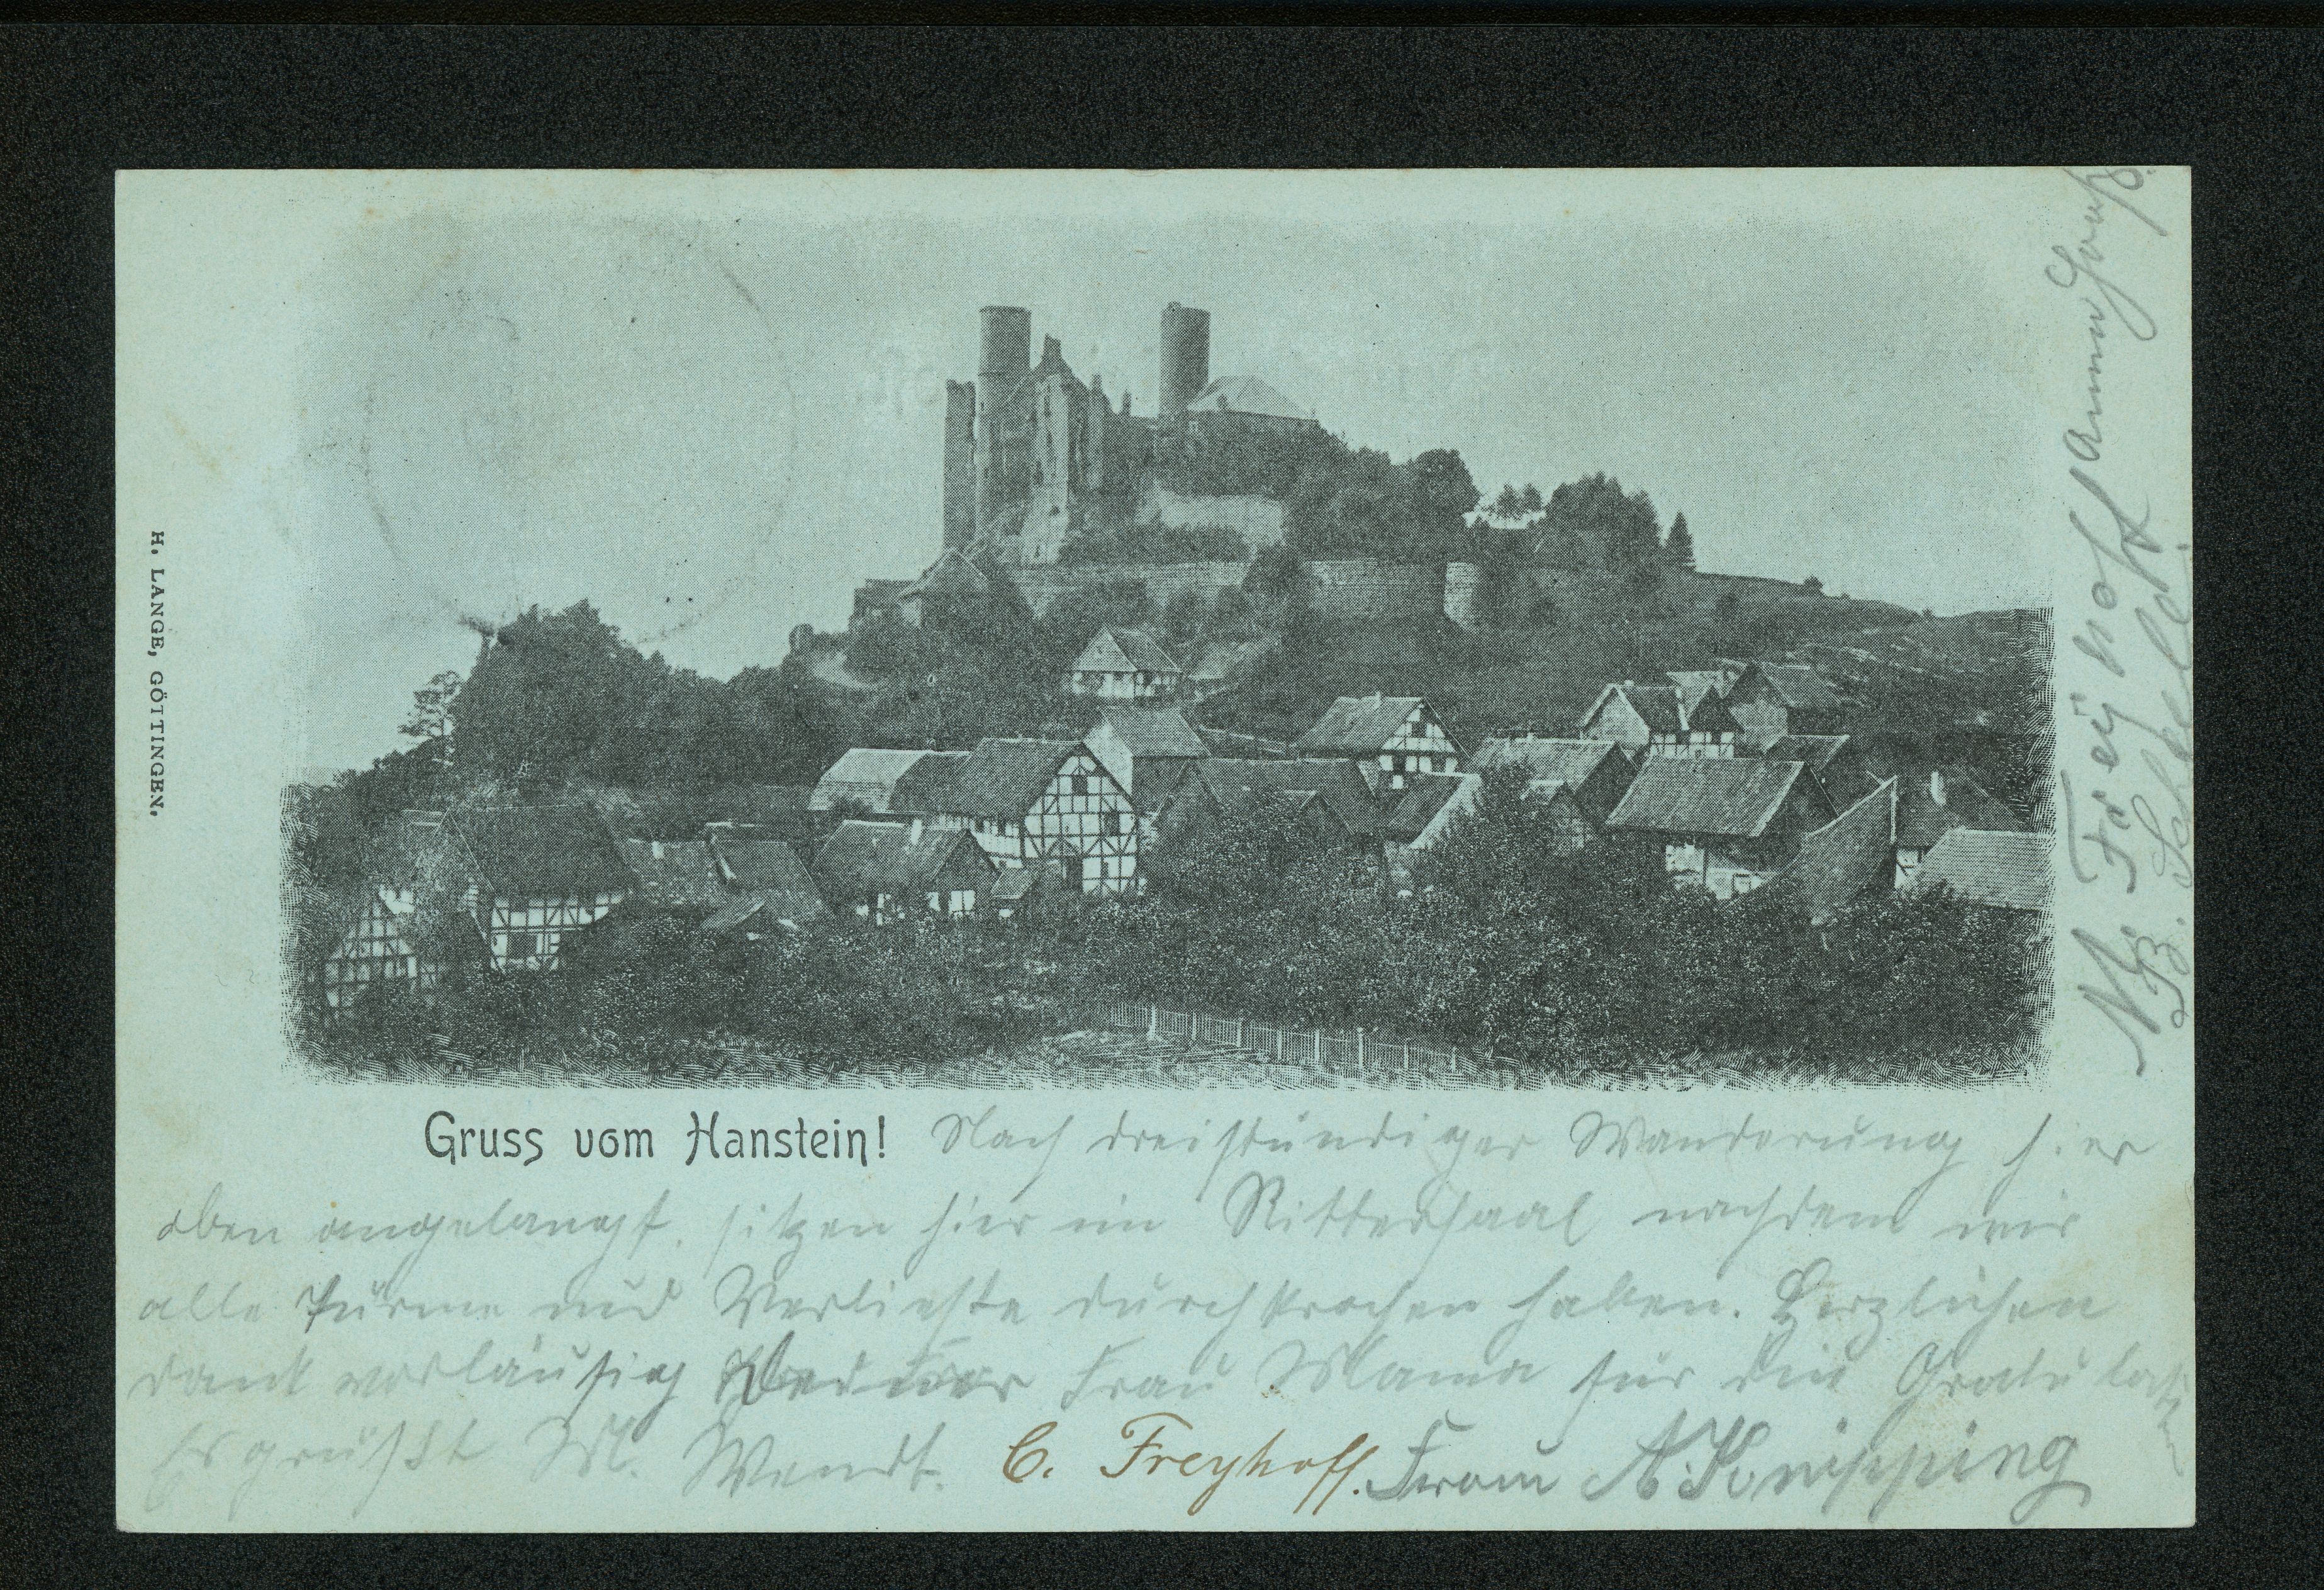 H. LANGE, GÖTTINGEN.
Gruss vom Hanstein! Nach dreistündiger Wanderung hier
oben angelangt, sitzen hier im Rittersaal nachdem wir
alle Türme und Verließe durchkrochen haben. Herzlichen
Dank vorläufig Frau Mama für die Gratulation
Es grüßt M. Wendt. C. Freyhoff. A. Knipping
M. Freyhoff Anna
B.